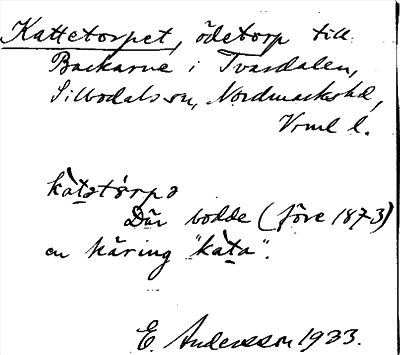 Kattetorpet, ödetorp till
Backarne i Tvärdalen,
Silbodals sn, Nordmarks hd,
Vrml l.
kàtatórpə
Där bodde (före 1873)
en käring "kàta".
E. Andersson 1933.